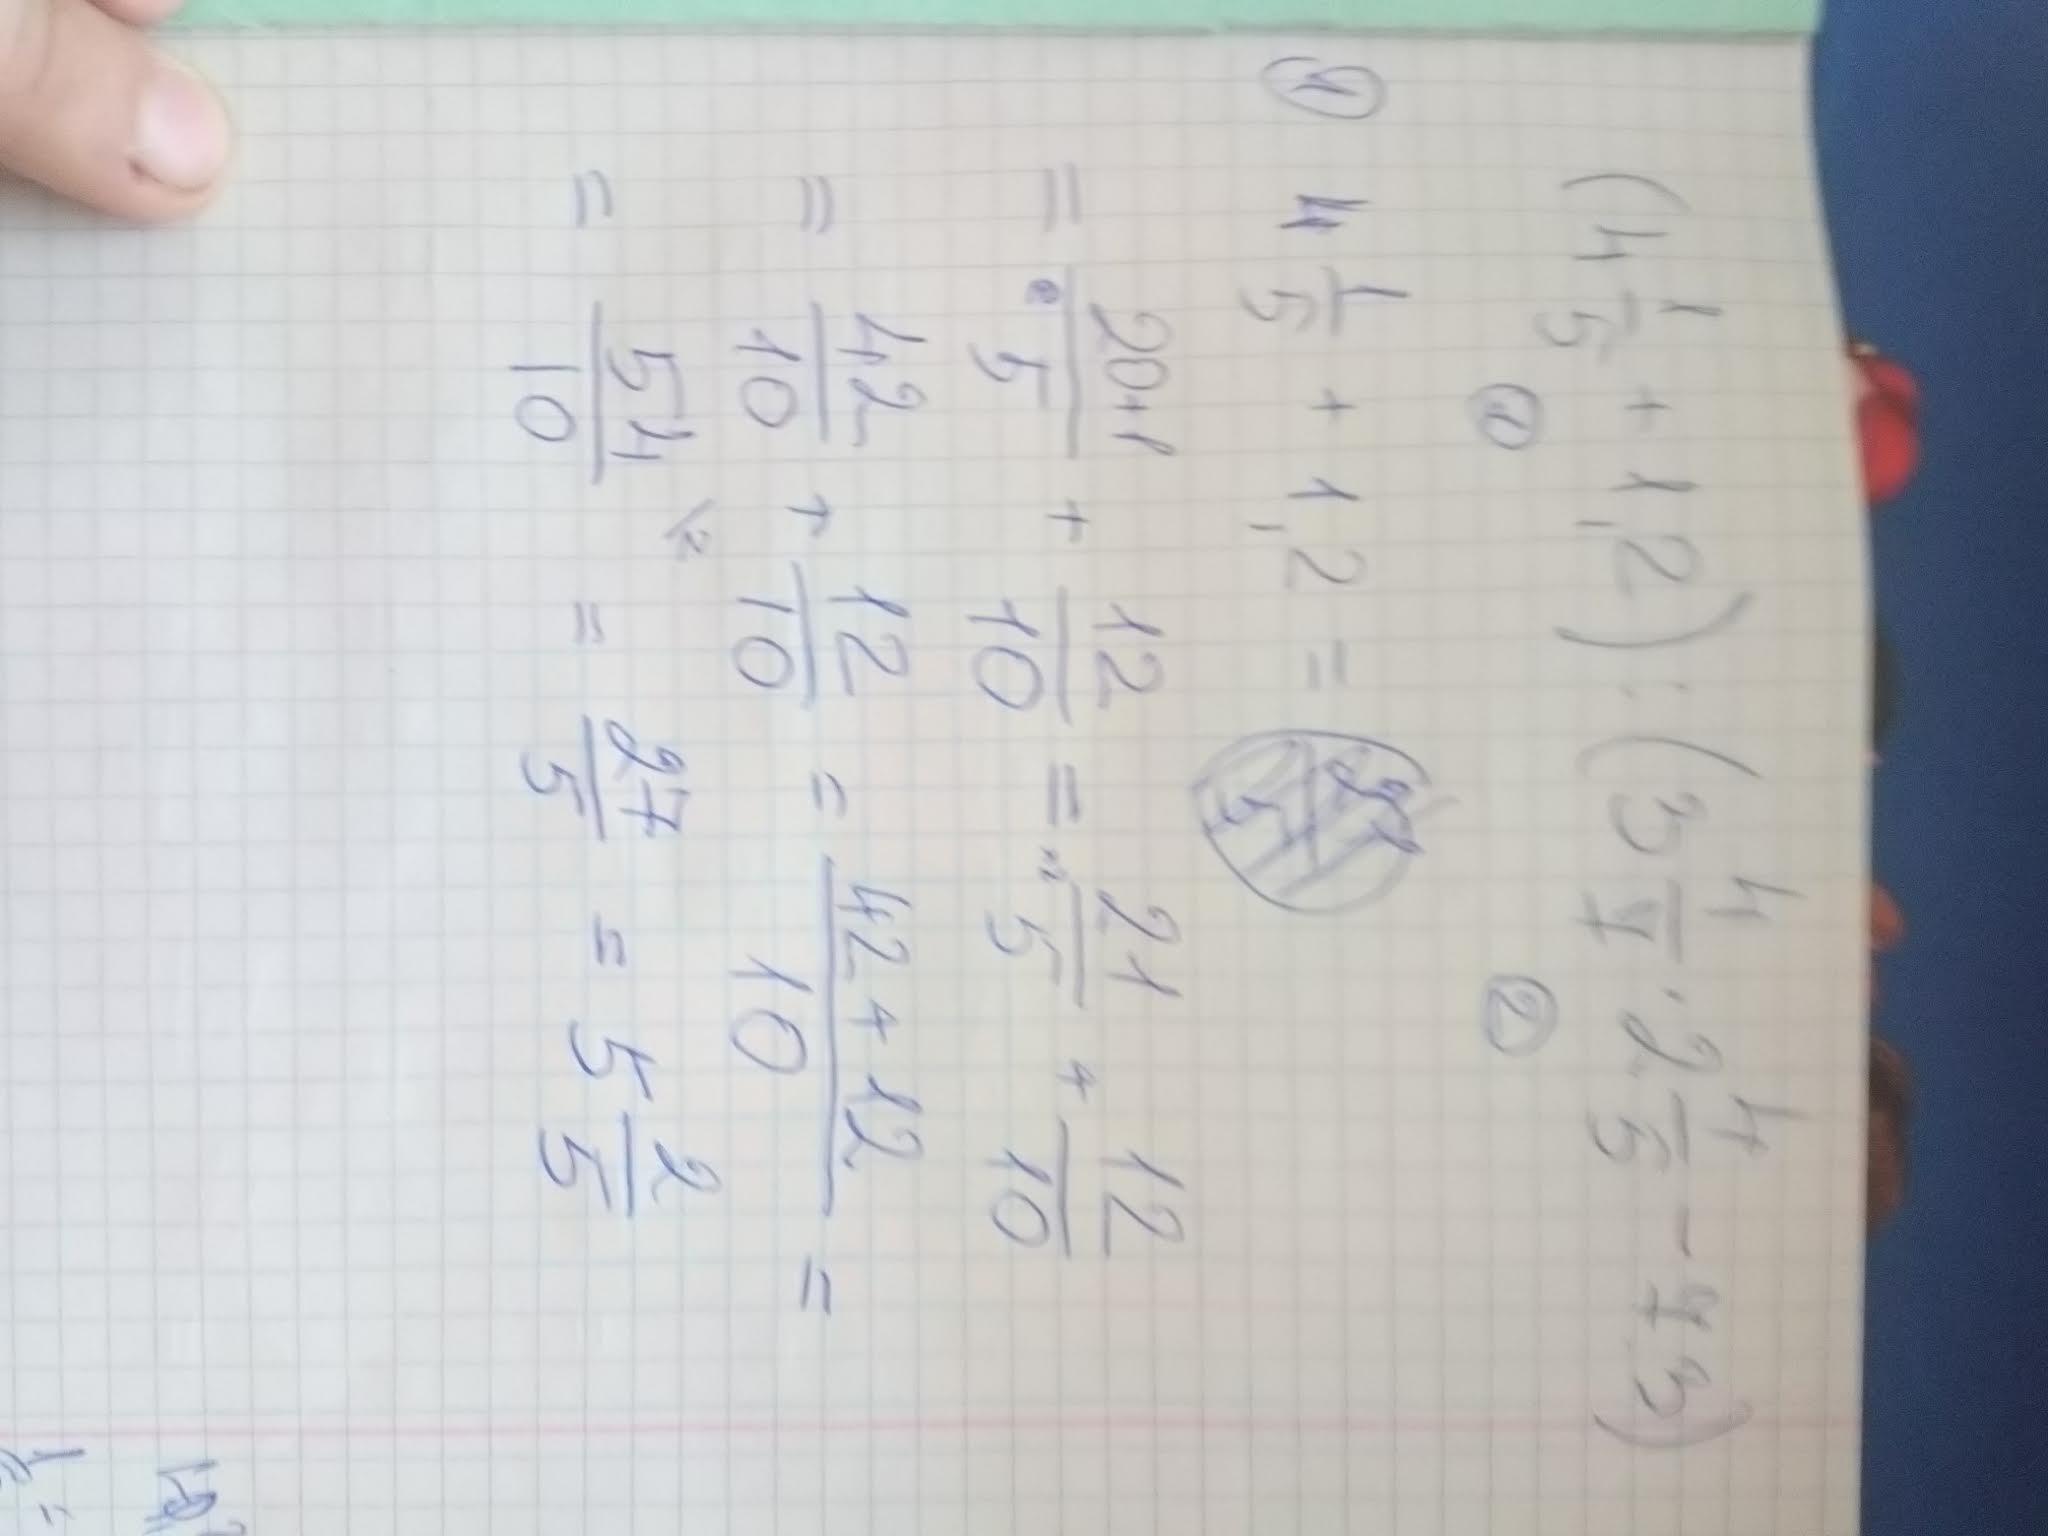 (4 1/5 + 1,2) : (3 4/7 · 2 4/5 - 4,3)
① ②
① 4 1/5 + 1,2 =
= (20+1)/5 + 12/10 = 21/5 + 12/10
= 42/10 + 12/10 = (42+12)/10 =
= 54/10 \2 = 27/5 = 5 2/5